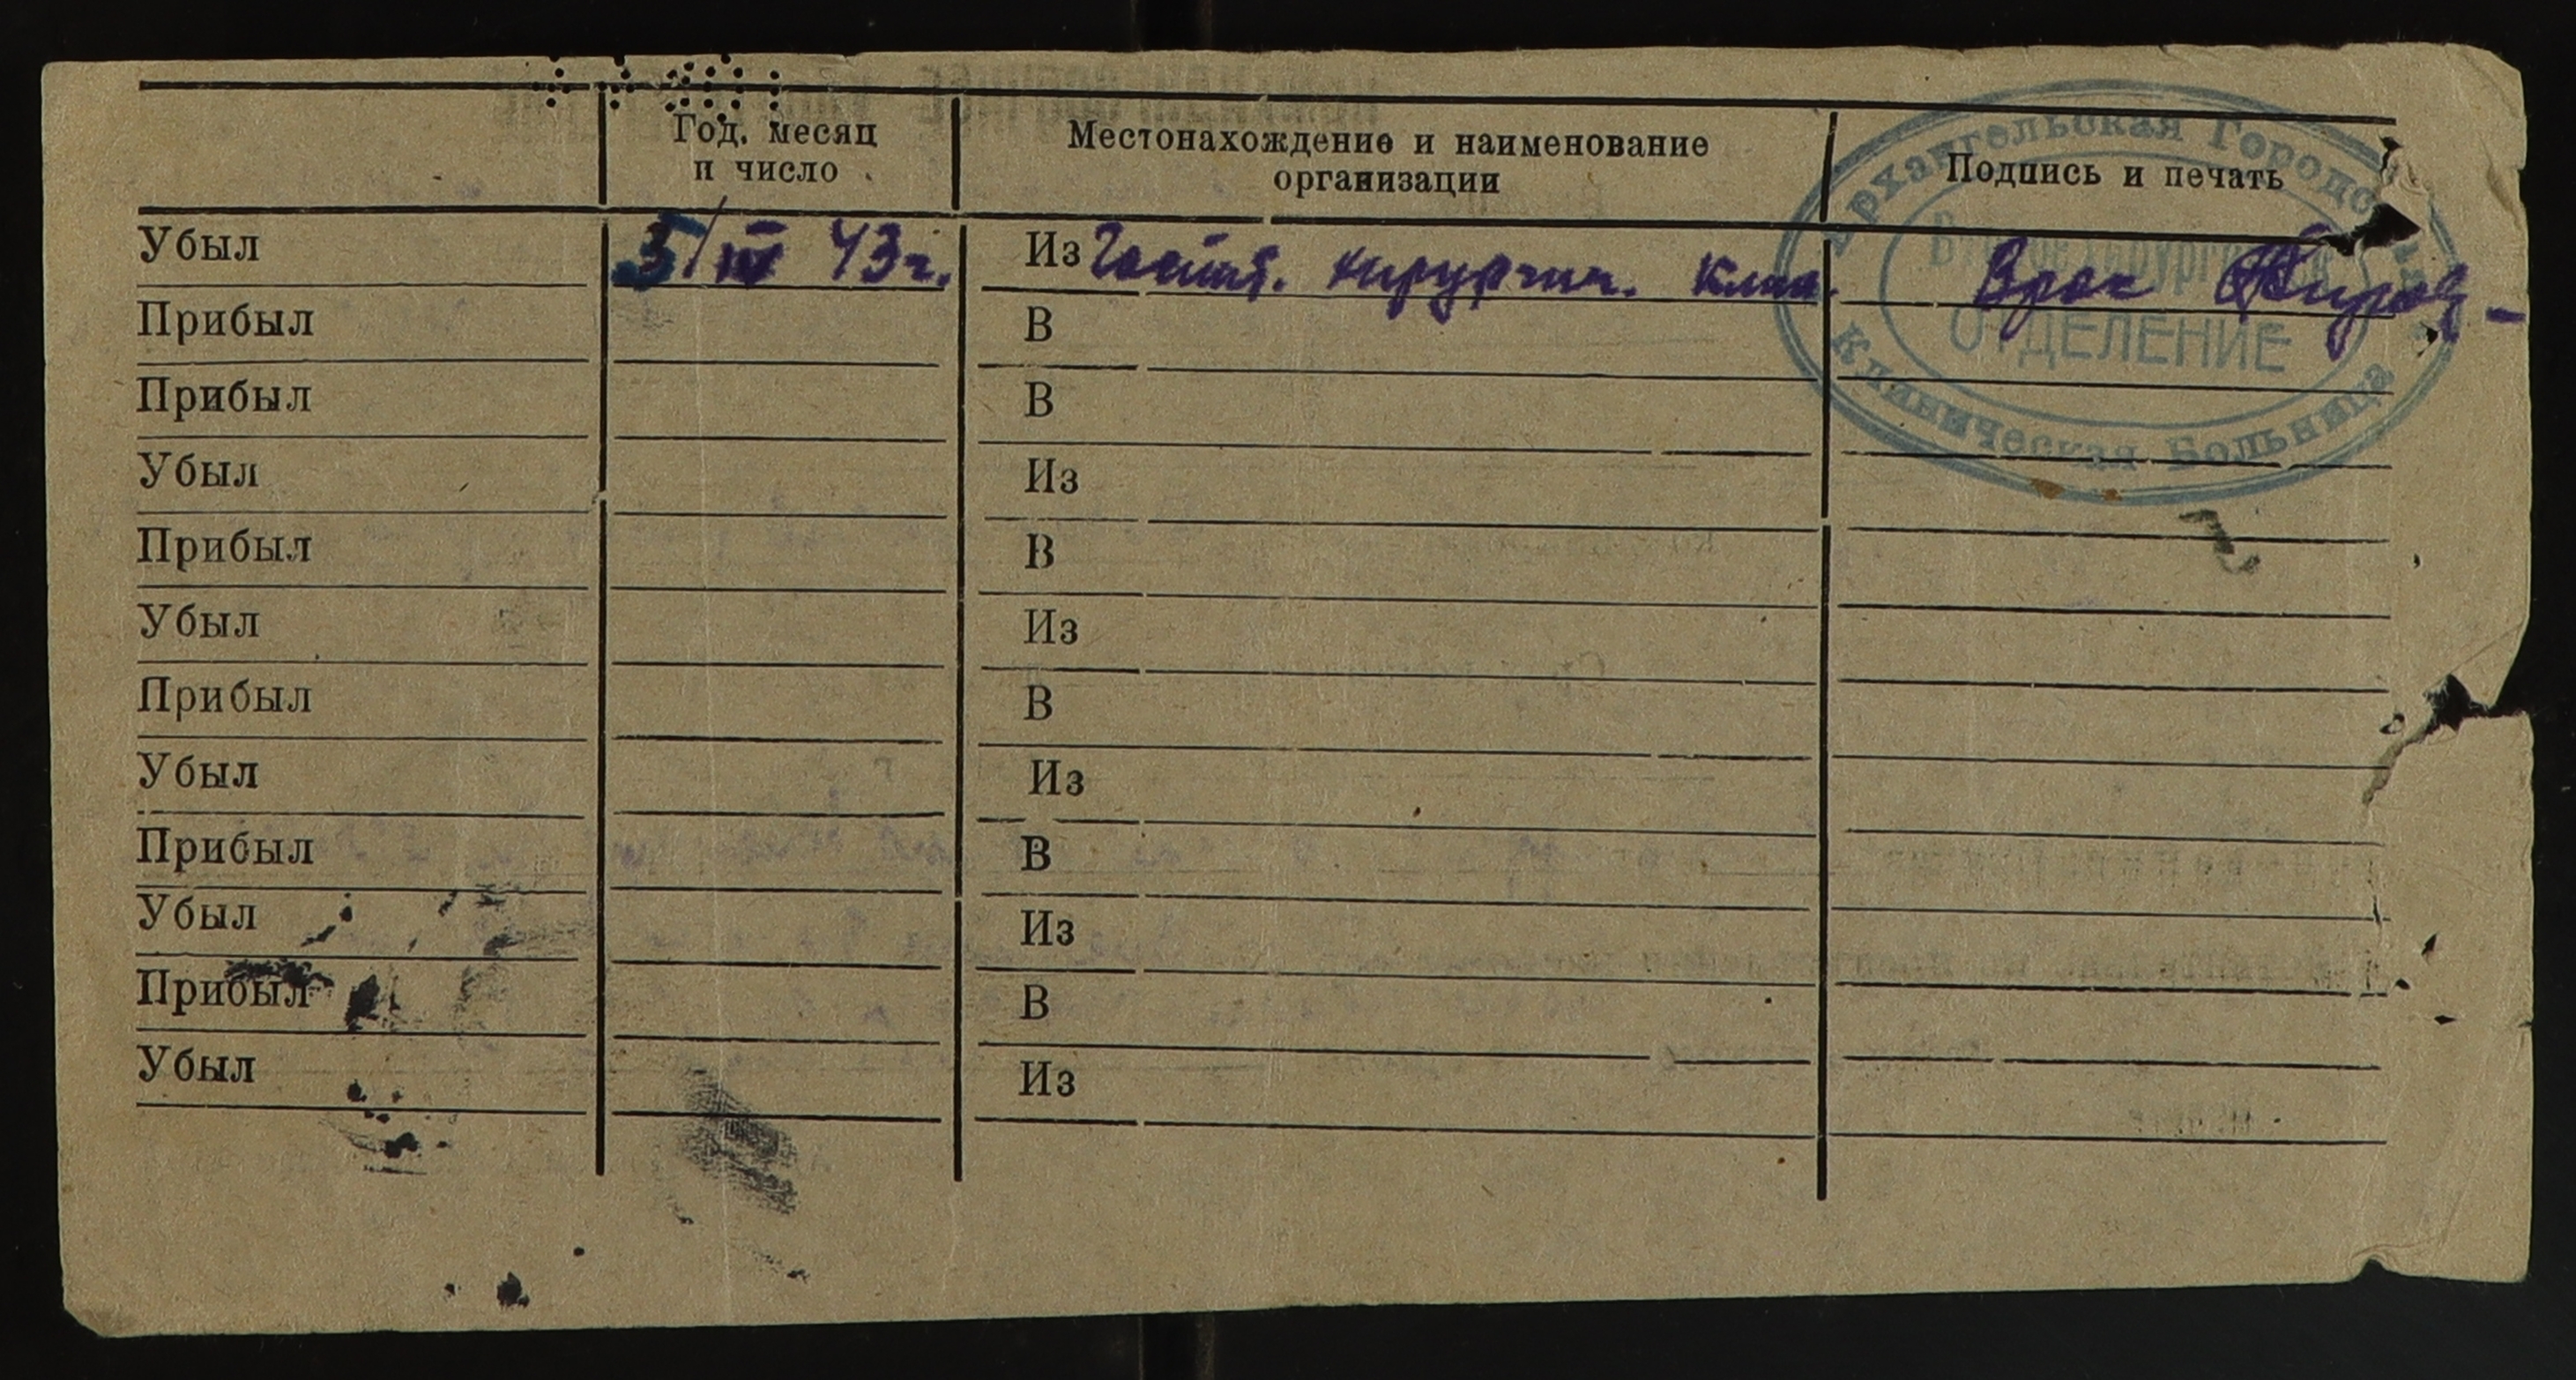 Год, месяц
и число
Местонахождение и наименование
организации
Подпись и печать
Убыл 5/III 43г. Из Госпит. хирургич. клин. Врач
Прибыл В
Прибыл В
Убыл Из
Прибыл В
Убыл Из
Прибыл В
Убыл Из
Прибыл В
Убыл Из
Прибыл В
Убыл Из
Архангельская Городская
Клиническая Больница
ОТДЕЛЕНИЕ